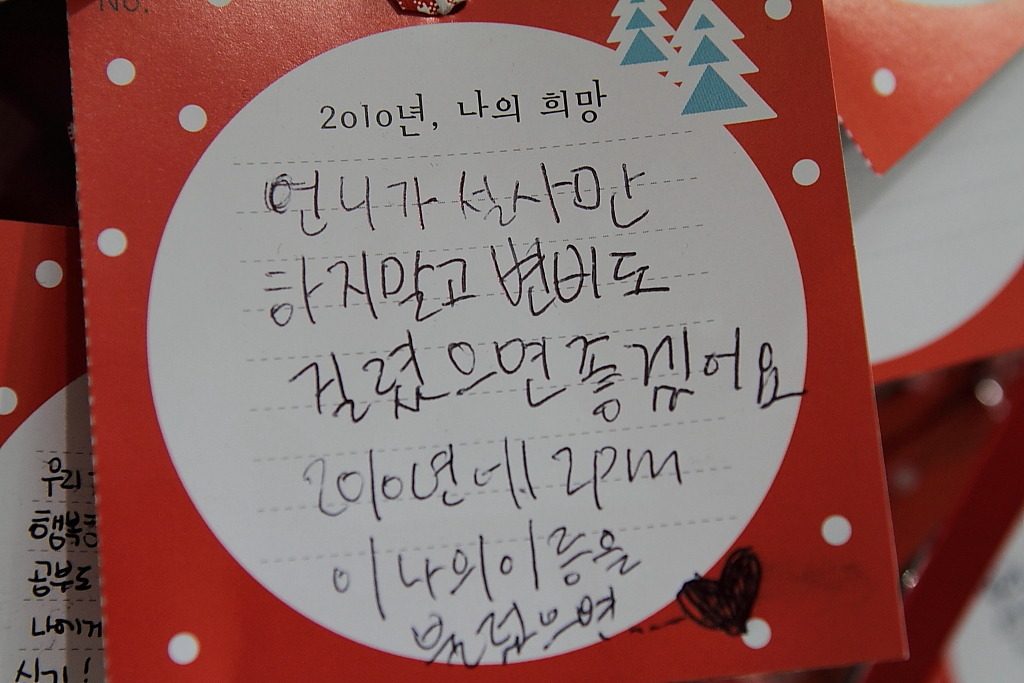 No.
2010년, 나의 희망
언니가 설사만
하지말고 변비도
걸렸으면 좋겠어요
2010년에 2pm
이 나의이름을
불렀으면
우리
행복
공부도
나에게